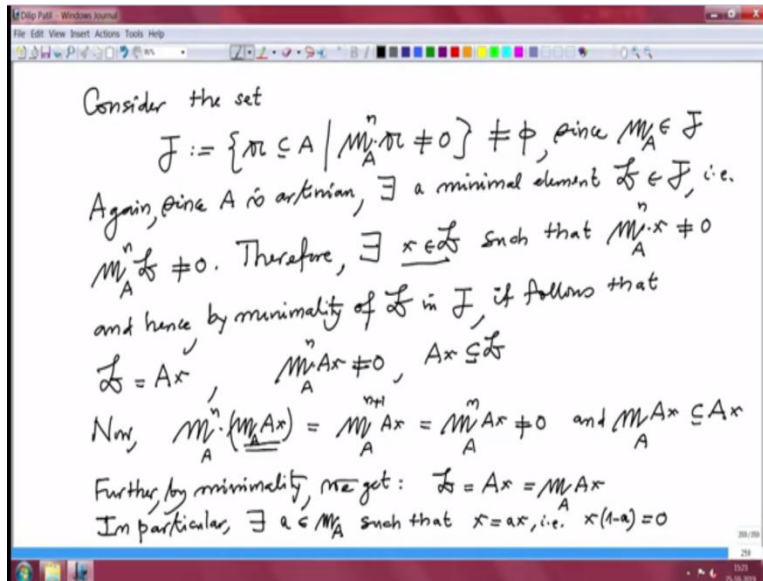 Dilip Patil - Windows Journal
File Edit View Insert Actions Tools Help
B I
Consider the set
F := {𝔞 ⊆ A | 𝔪_A^n·𝔞 ≠ 0} ≠ ϕ, since 𝔪_A ∈ F
Again, since A is artinian, ∃ a minimal element 𝔟 ∈ F, i.e.
𝔪_A^n 𝔟 ≠ 0. Therefore, ∃ x ∈ 𝔟 such that 𝔪_A^n·x ≠ 0
and hence, by minimality of 𝔟 in F, it follows that
𝔟 = Ax, 𝔪_A^n Ax ≠ 0, Ax ⊆ 𝔟
Now, 𝔪_A^n·(𝔪_A Ax) = 𝔪_A^{n+1} Ax = 𝔪_A^n Ax ≠ 0 and 𝔪_A Ax ⊆ Ax
Further, by minimality, we get: 𝔟 = Ax = 𝔪_A Ax
In particular, ∃ a ∈ 𝔪_A such that x = ax, i.e. x(1-a) = 0
250
15:21